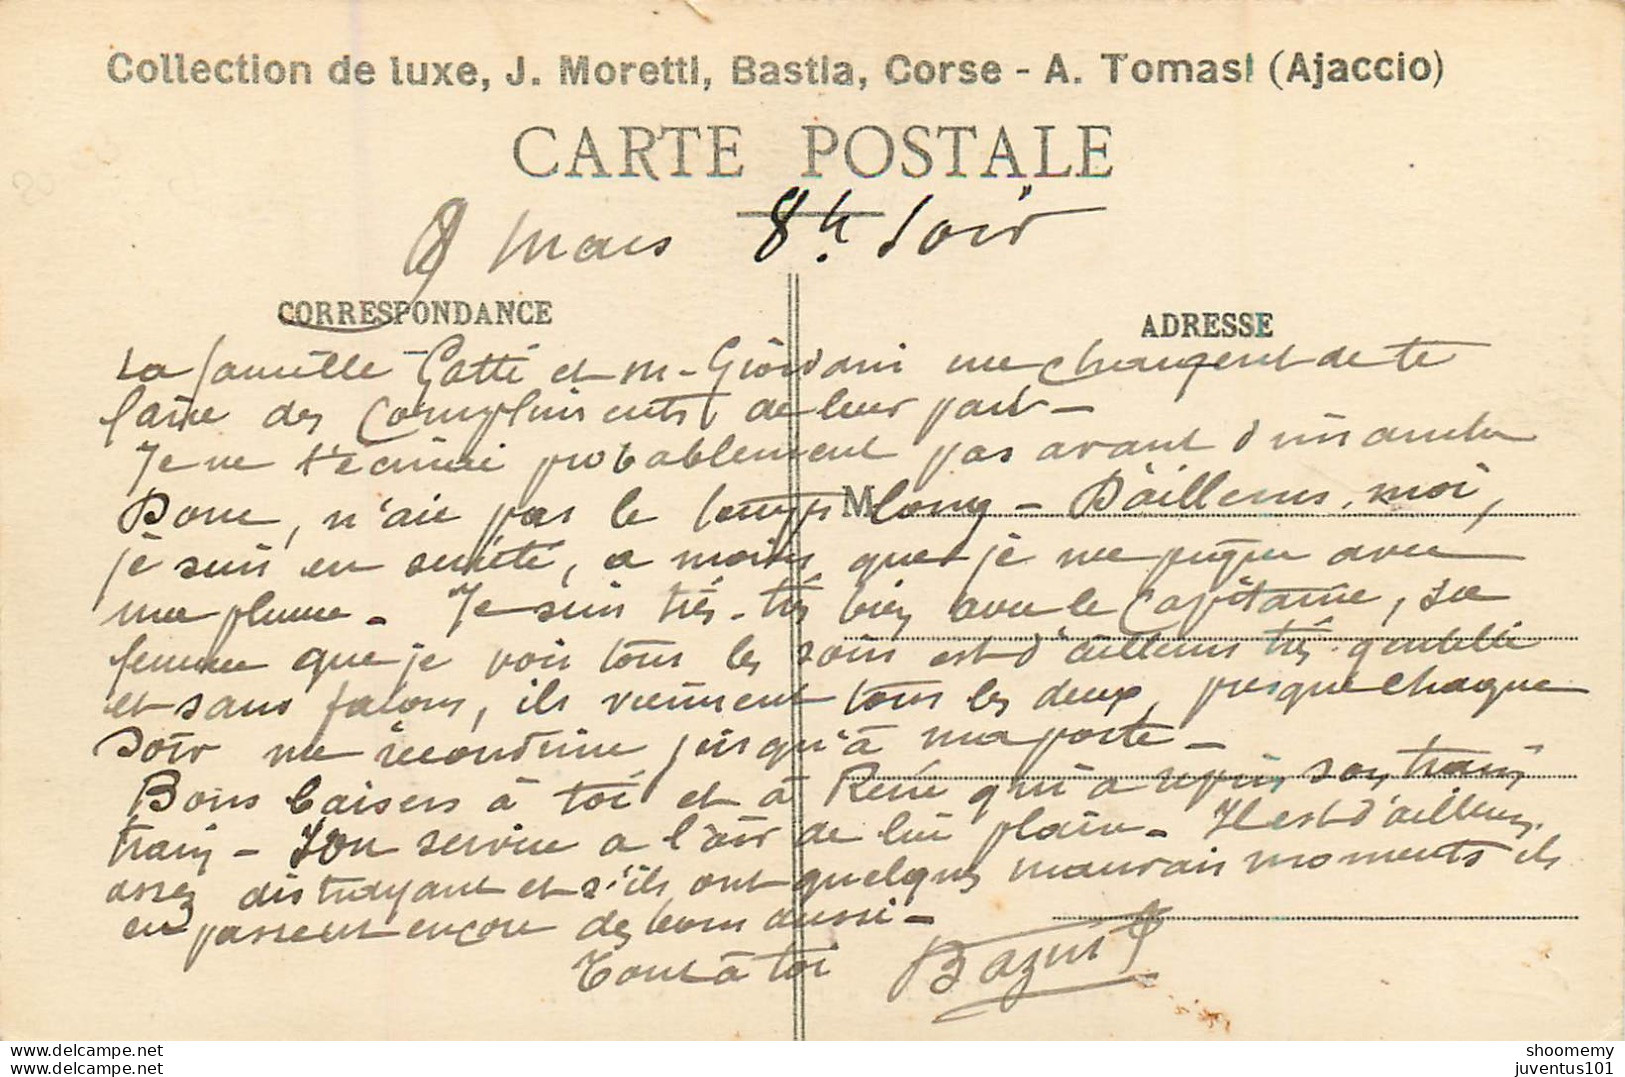 Collection de luxe, J. Moretti, Bastia, Corse - A. Tomasi (Ajaccio)
CARTE POSTALE
8 mars 8h. soir
CORRESPONDANCE
ADRESSE
La famille Gatti et M. Giordani me chargent de te
faire des compliments de leur part -
Je ne t'écrirai probablement pas avant dimanche
Donc, n'aie pas le temps long - D'ailleurs, moi,
M
je suis en sureté, a moins que je me pique avec
ma plume - Je suis très-très bien avec le Capitaine, sa
femme que je vois tous les soirs est d'ailleurs très gentille
et sans façons, ils viennent tous les deux, presque chaque
soir me reconduire jusqu'à ma porte -
Bons baisers à toi et à René qui a repris son train
train - Son service a l'air de lui plaire - Il est d'ailleurs
assez distrayant et s'ils ont quelques mauvais moments ils
en passent encore de bons aussi -
Tout à toi
shoomemy
juventus101